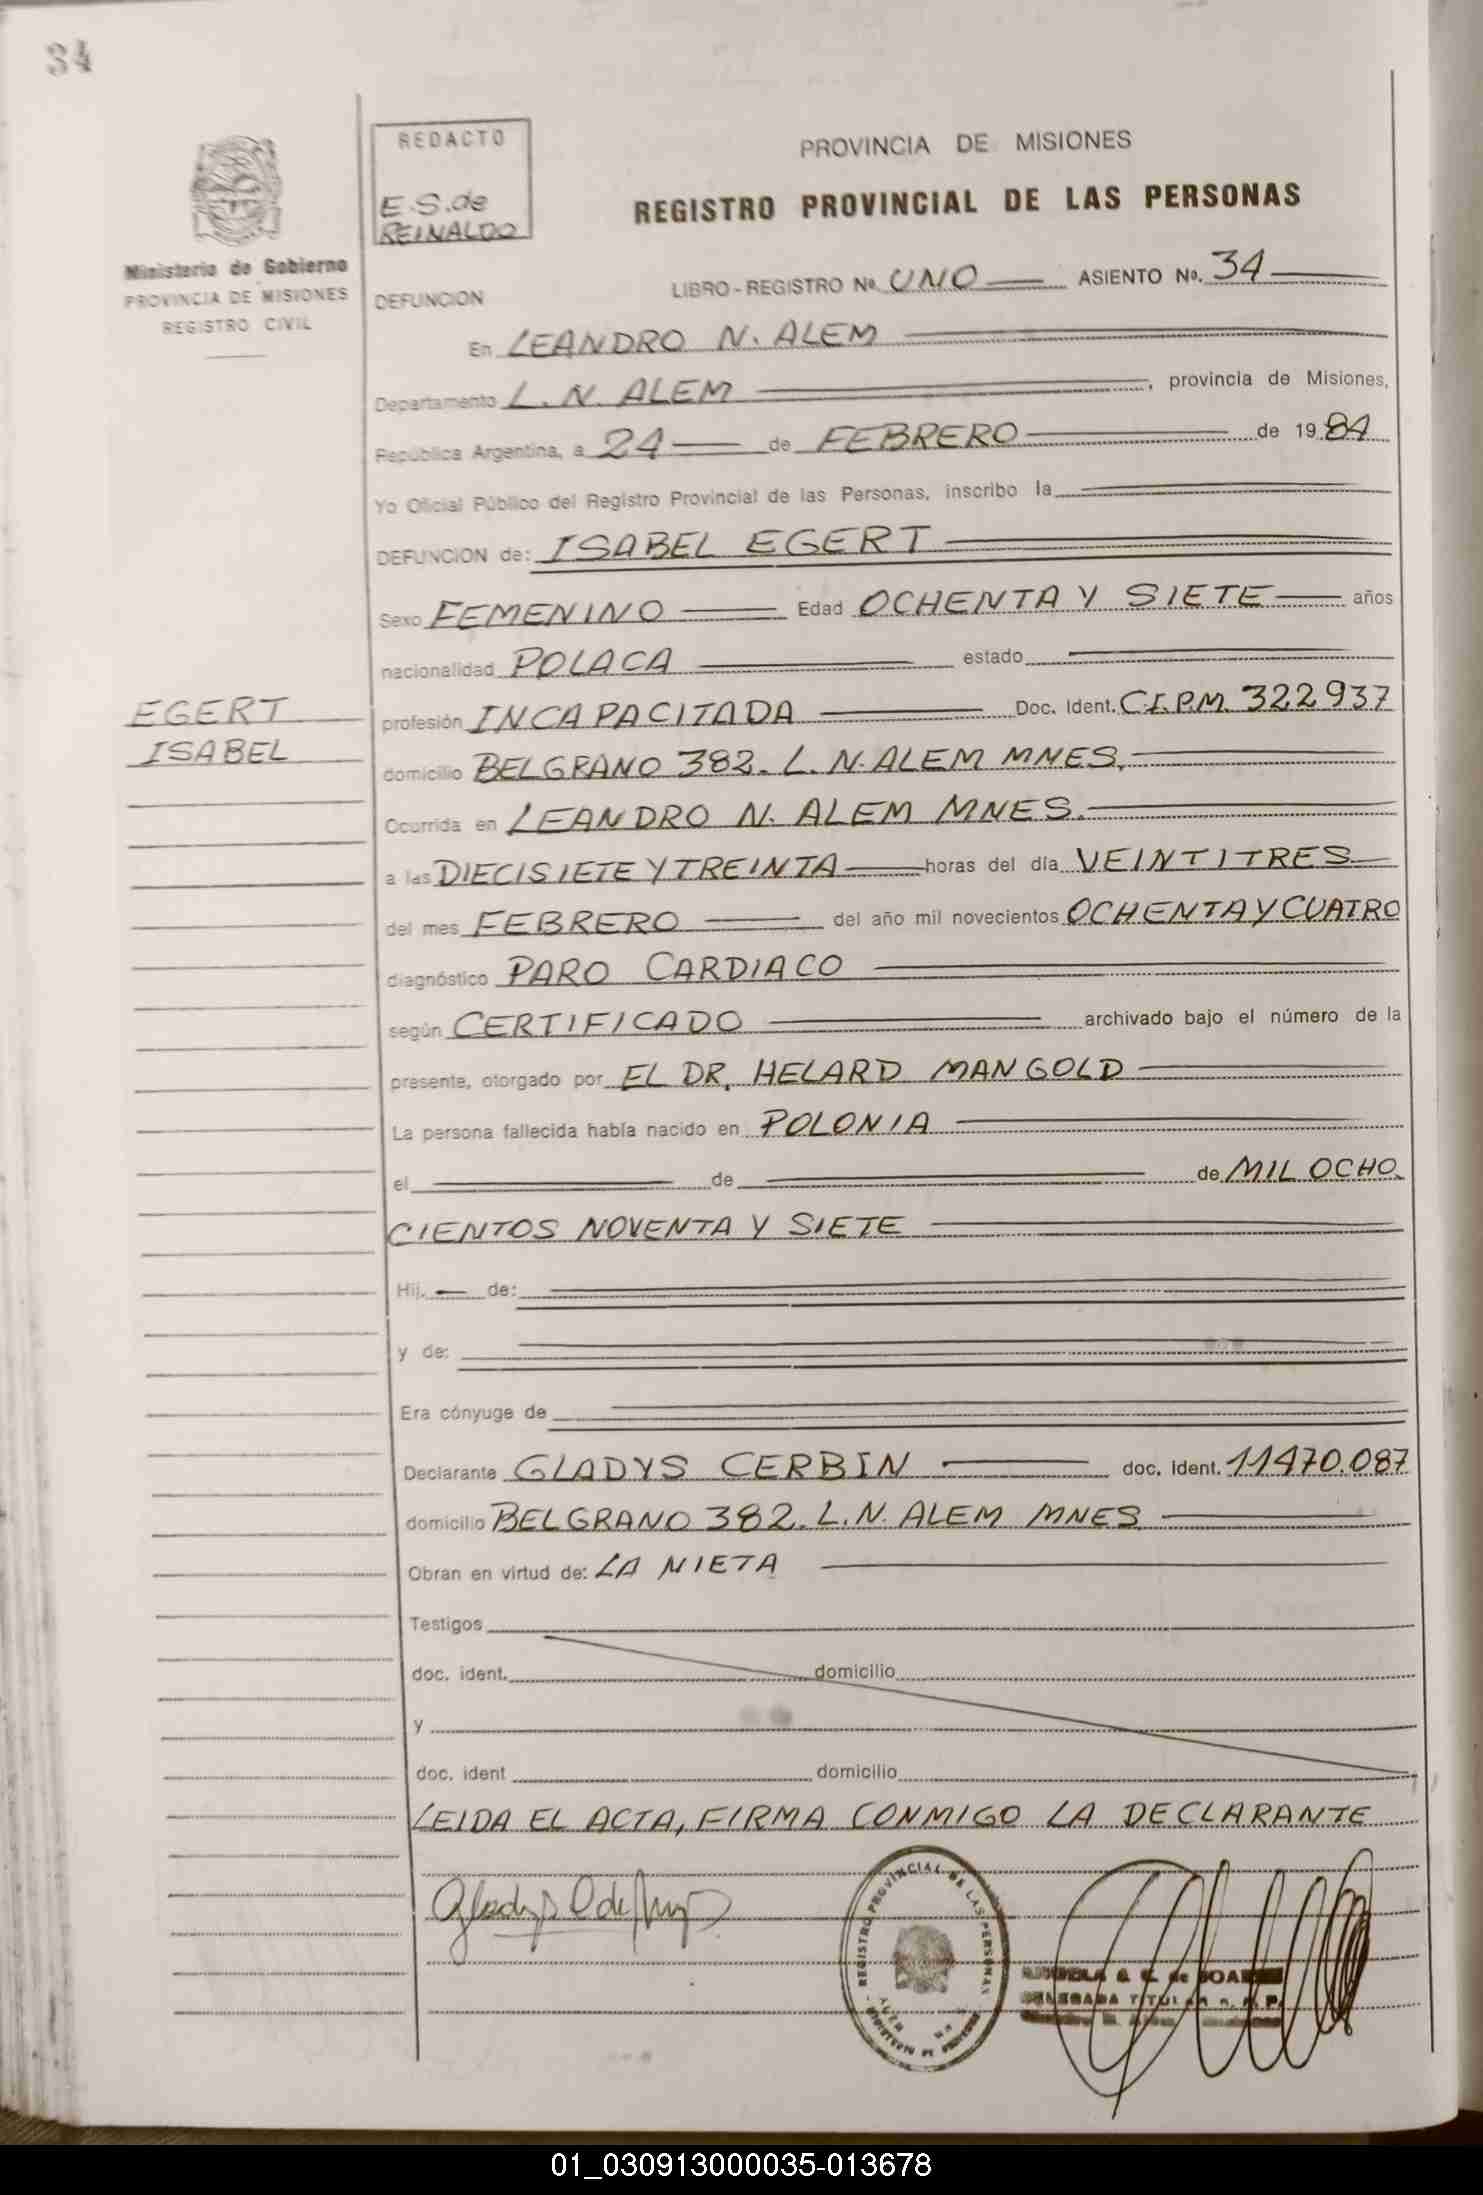 34
REDACTO
E.S. de
REINALDO
PROVINCIA DE MISIONES
REGISTRO PROVINCIAL DE LAS PERSONAS
Ministerio de Gobierno
PROVINCIA DE MISIONES
REGISTRO CIVIL
DEFUNCION
LIBRO-REGISTRO Nº. UNO ASIENTO Nº. 34
En LEANDRO N. ALEM
Departamento L. N. ALEM, provincia de Misiones,
República Argentina, a 24 de FEBRERO de 1984
Yo Oficial Público del Registro Provincial de las Personas, inscribo la
DEFUNCION de: ISABEL EGERT
Sexo FEMENINO Edad OCHENTA Y SIETE años
nacionalidad POLACA estado
EGERT
ISABEL
profesión INCAPACITADA Doc. Ident. C.I.P.M. 322937
domicilio BELGRANO 382. L. N. ALEM MNES.
Ocurrida en LEANDRO N. ALEM MNES.
a las DIECISIETE Y TREINTA horas del día VEINTITRES
del mes FEBRERO del año mil novecientos OCHENTA Y CUATRO
diagnóstico PARO CARDIACO
según CERTIFICADO archivado bajo el número de la
presente, otorgado por EL DR. HELARD MANGOLD
La persona fallecida había nacido en POLONIA
el de de MIL OCHO
CIENTOS NOVENTA Y SIETE
Hij. de:
y de:
Era cónyuge de
Declarante GLADYS CERBIN doc. ident. 11470.087
domicilio BELGRANO 382. L.N. ALEM MNES
Obran en virtud de: LA NIETA
Testigos
doc. ident. domicilio
y
doc. ident domicilio
LEIDA EL ACTA, FIRMA CONMIGO LA DECLARANTE
REGISTRO PROVINCIAL DE LAS PERSONAS
DELEGADA TITULAR
01_030913000035-013678